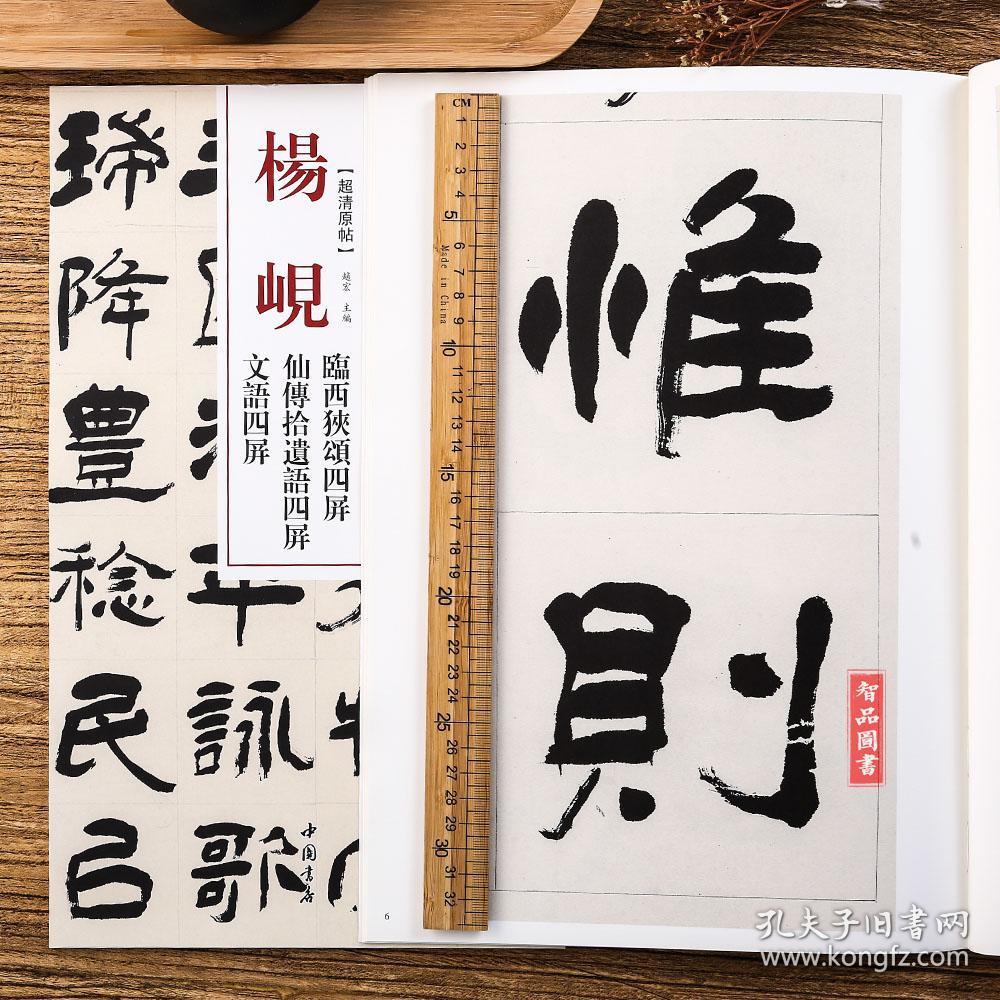 楊峴
【超清原帖】
趙宏 主編
臨西狹頌四屏
仙傳拾遺語四屏
文語四屏
琋
降
豊
稔
民
平
詠
歌
中國書店
CM
1
2
3
4
5
6
7
8
9
10
11
12
13
14
15
16
17
18
19
20
21
22
23
24
25
26
27
28
29
30
31
32
Made in China
惟
則
智品圖書
6
孔夫子旧书网
www.kongfz.com